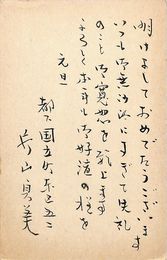 明けましておめでたうございます
いつも御無沙汰にすぎて失礼
のこと御寛恕を願上ます
本年も御好誼の程を
元旦
都下国立町